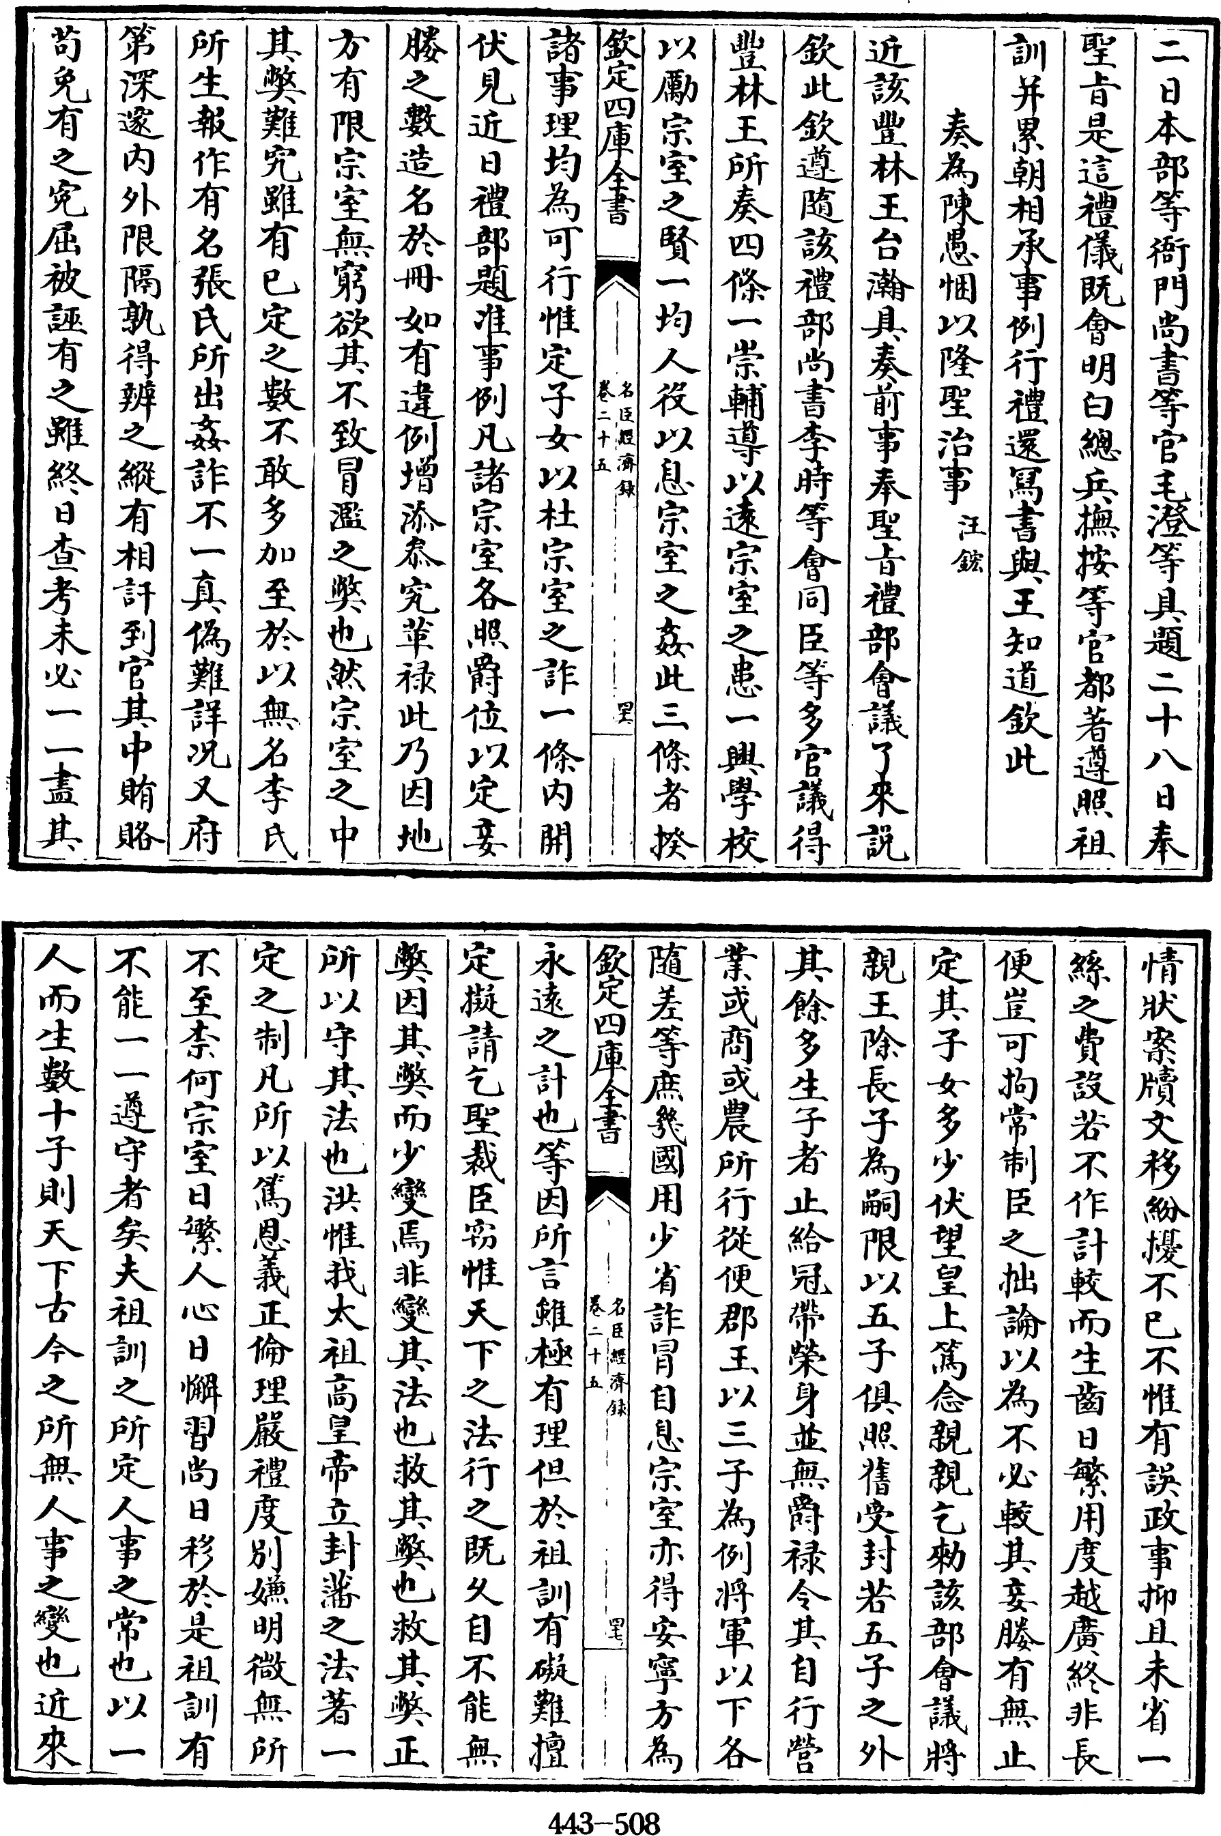 二日本部等衙門尚書等官毛澄等具題二十八日奉
聖旨是這禮儀既會明白總兵撫按等官都著遵照祖
訓并累朝相承事例行禮還寫書與王知道欽此
奏為陳愚悃以隆聖治事 汪鋐
近該豐林王台瀚具奏前事奉聖旨禮部會議了來說
欽此欽遵隨該禮部尚書李時等會同臣等多官議得
豐林王所奏四條一崇輔導以遠宗室之患一興學校
以勵宗室之賢一均人役以息宗室之姦此三條者揆
欽定四庫全書
名臣經濟録
卷二十五
四六
諸事理均為可行惟定子女以杜宗室之詐一條内開
伏見近日禮部題准事例凡諸宗室各照爵位以定妾
媵之數造名於冊如有違例增添叅究革禄此乃因地
方有限宗室無窮欲其不致冒濫之獘也然宗室之中
其獘難究雖有已定之數不敢多加至於以無名李氏
所生報作有名張氏所出姦詐不一真偽難詳况又府
第深邃内外限隔孰得辨之縱有相訐到官其中賄賂
苟免有之寃屈被誣有之雖終日查考未必一一盡其
情狀案牘文移紛擾不已不惟有誤政事抑且未省一
絲之費設若不作計較而生齒日繁用度越廣終非長
便豈可拘常制臣之拙論以為不必較其妾媵有無止
定其子女多少伏望皇上篤念親親乞勅該部會議將
親王除長子為嗣限以五子俱照舊受封若五子之外
其餘多生子者止給冠帶榮身並無爵禄令其自行營
業或商或農所行從便郡王以三子為例將軍以下各
隨差等庶幾國用少省詐冒自息宗室亦得安寧方為
欽定四庫全書
名臣經濟録
卷二十五
四七
永遠之計也等因所言雖極有理但於祖訓有礙難擅
定擬請乞聖裁臣窃惟天下之法行之既久自不能無
獘因其獘而少變焉非變其法也救其獘也救其獘正
所以守其法也洪惟我太祖高皇帝立封藩之法著一
定之制凡所以篤恩義正倫理嚴禮度别嫌明微無所
不至柰何宗室日繁人心日懈習尚日移於是祖訓有
不能一一遵守者矣夫祖訓之所定人事之常也以一
人而生數十子則天下古今之所無人事之變也近來
443-508